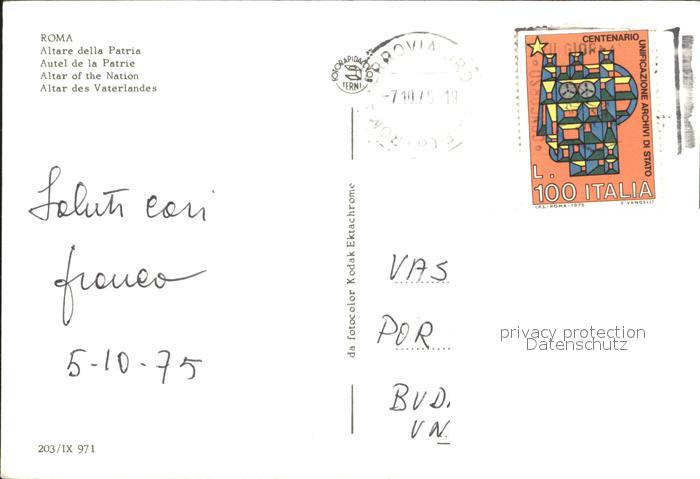 ROMA
Altare della Patria
Autel de la Patrie
Altar of the Nation
Altar des Vaterlandes
Saluti cari
franco
5-10-75
203/IX 971
da fotocolor Kodak Ektachrome
FOTORAPIDACOLOR
TERNI
-7.10.75-19
CENTENARIO
UNIFICAZIONE ARCHIVI DI STATO
L. 100 ITALIA
I.P.S.-ROMA-1975 E VANGELLI
VAS
POR
BUD.
UN
privacy protection
Datenschutz